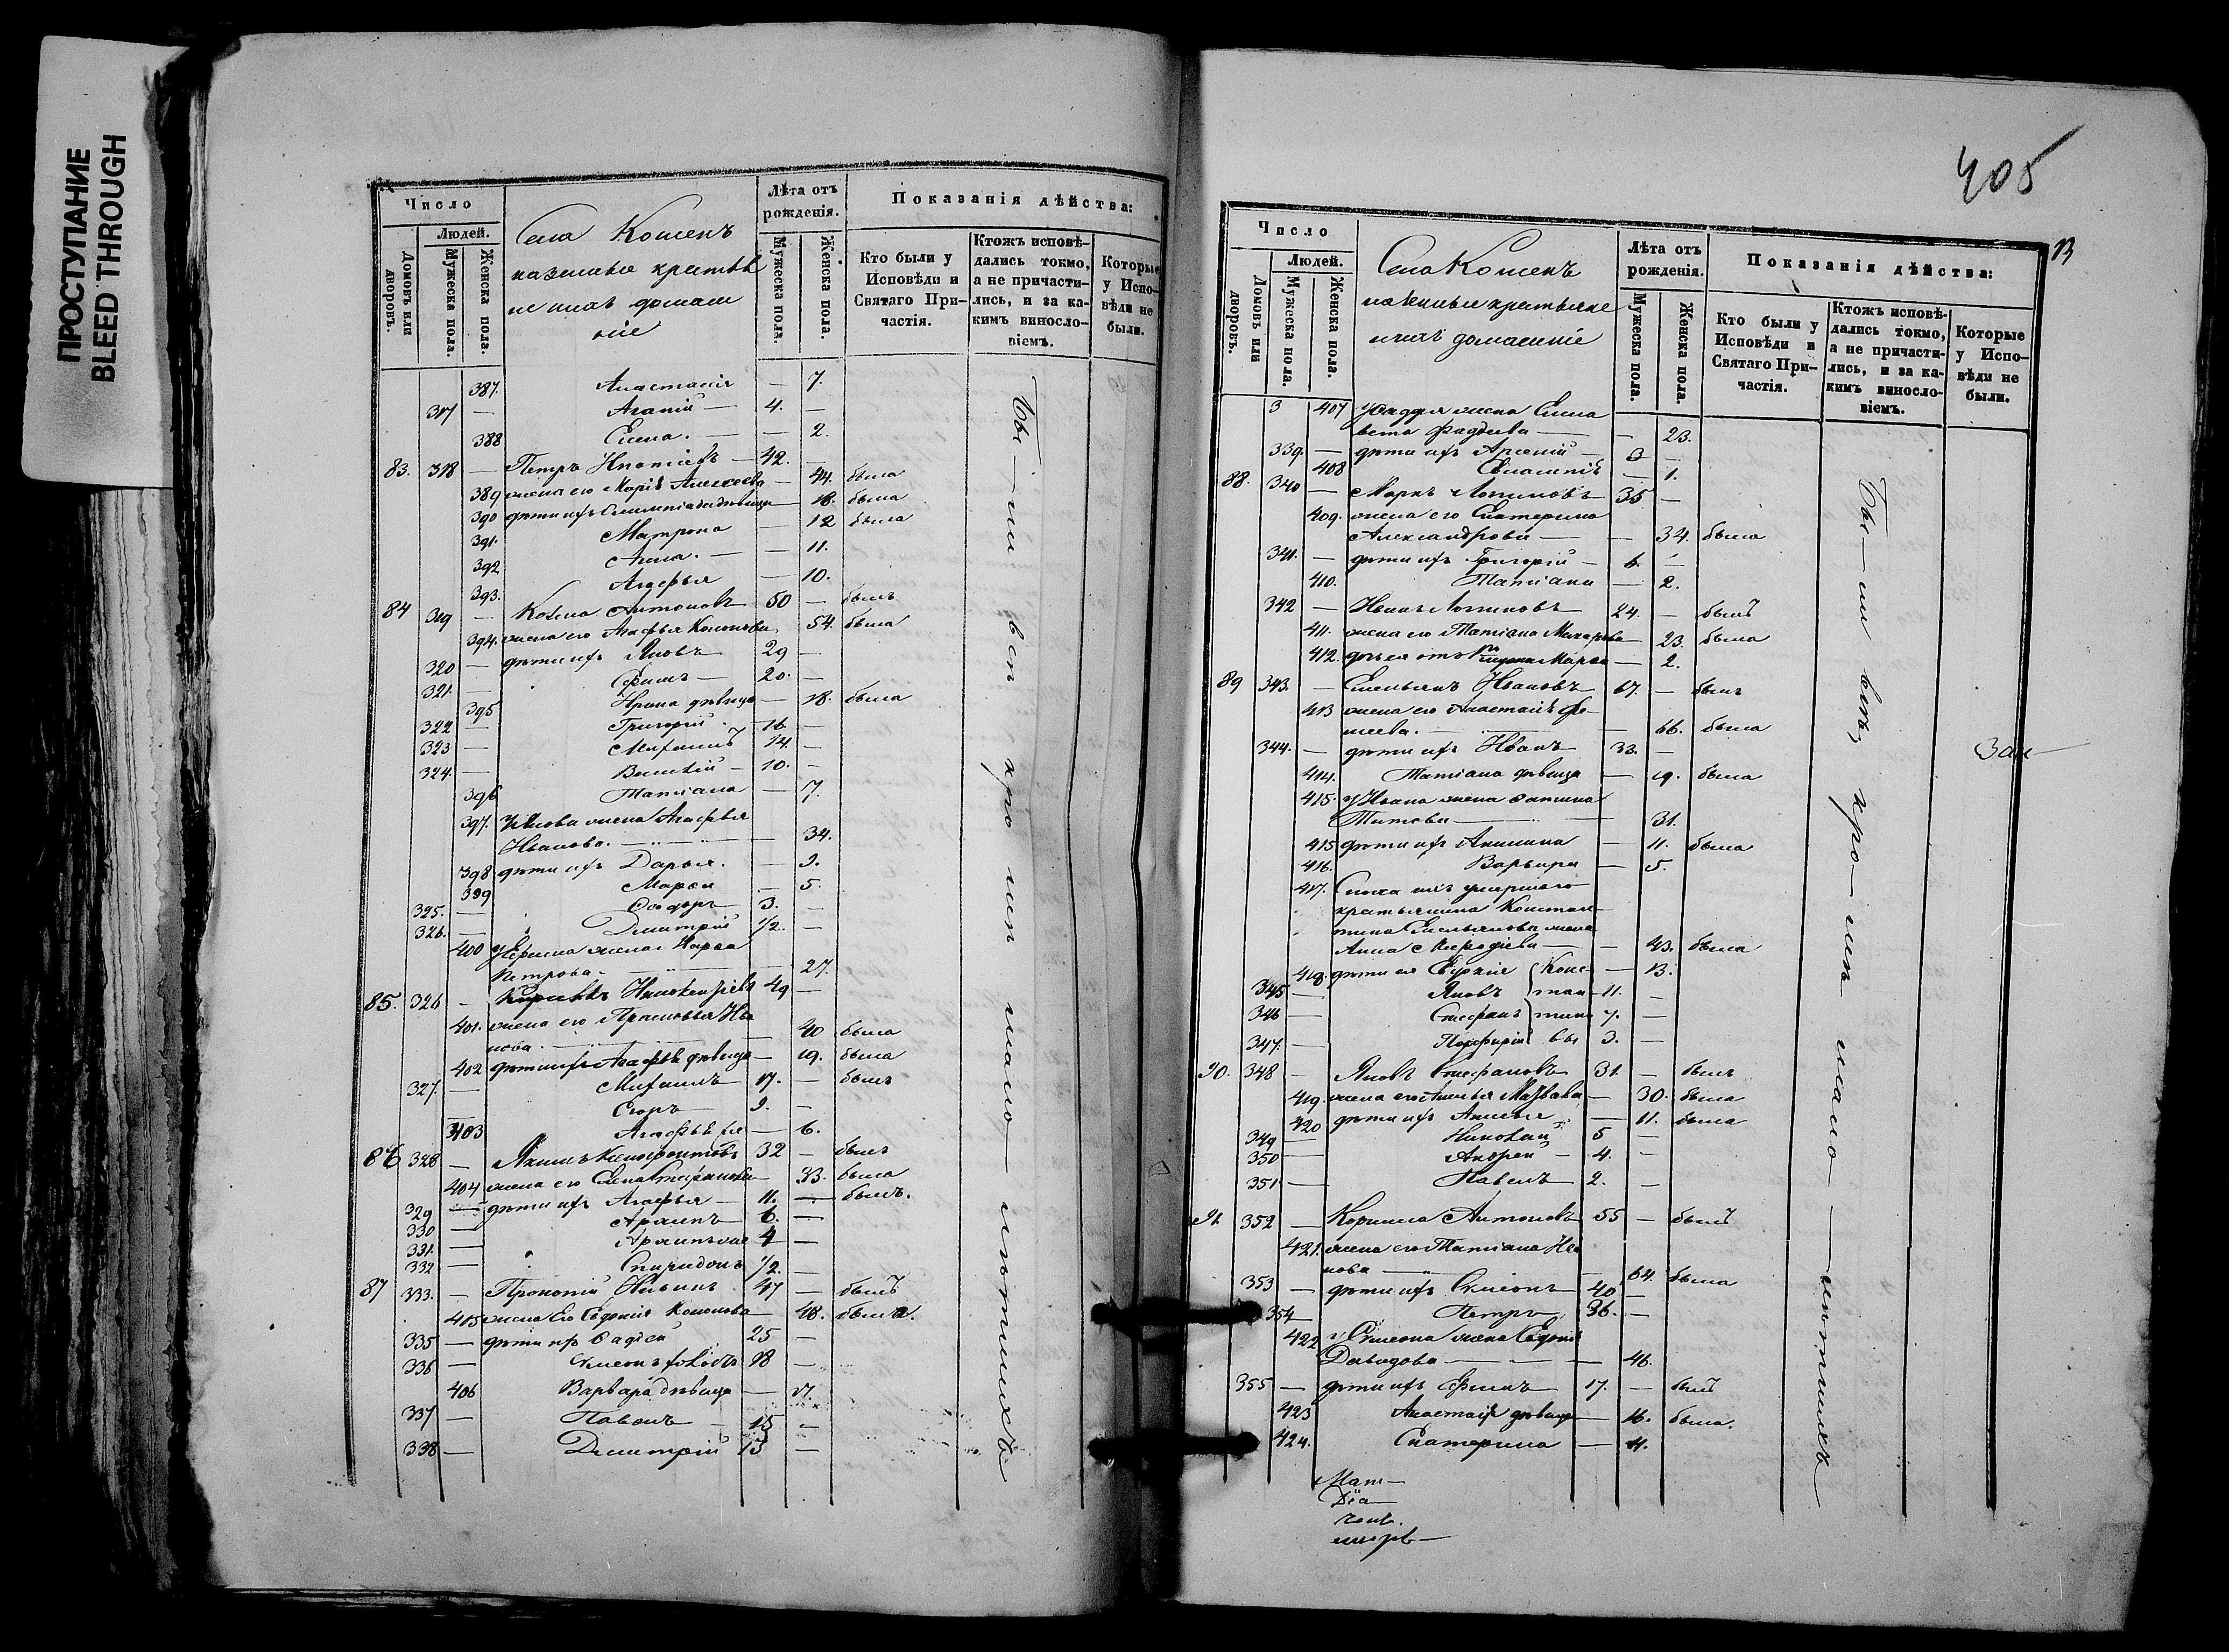 ПРОСТУПАНИЕ
BLEED THROUGH
Число
Людей.
Домовъ или дворовъ.
Мужеска пола.
Женска пола.
Села Кошекъ
казенные кратья
не ихъ домаш
ніе
Лѣта отъ рожденія.
Мужеска пола.
Женска пола.
Показанія дѣйства:
Кто были у Исповѣди и Святаго Причастія.
Ктожъ исповѣдались токмо, а не причастились, и за какимъ винословіемъ.
Которые у Исповѣди не были.
387. Анастасія — 7.
317 — Агапій — 4. —
388 Елена. — — 2.
83. 318 — Петръ Игнатіевъ — 42. —
389 жена его Марія Алексеева — 44. была
390 дѣти ихъ девица — 18. была
391. Матрона — 12 была
392 Анна. — — 11.
393. Агафья — 10.
84 319 — Козма Антоновъ 50 — былъ
394. жена его Агафья Кононова 54. была
320 — дѣти ихъ Яковъ 29 —
321. — Филипъ — 20. —
395 Ирина дѣвица — 18. была
322 — Григорій — 16 —
323 — Михаилъ 14. —
324. — Василій — 10. —
396 Татіана — 7.
397. У Якова жена Агафья
Иванова. — 34.
398 дѣти ихъ Дарья. — 9.
399 Марѳа — 5.
325. — Ѳедоръ — 3. —
326. — Димитрій 1/2. —
400 жена Марѳа
Петрова — 27.
85. 326 — 49 —
401. жена его Прасковья Ива
нова. — 40 была
402 дѣти ихъ Агафья дѣвица — 19. была
327. — Михаилъ 17. — былъ
Егоръ — 9. —
403 Агафья — 6.
86 328 — Якимъ Ксенофонтовъ 32 — былъ
404 жена его Елена Стефанова 33. была
329 — дѣти ихъ Агафья — 11. — былъ.
330 — Архипъ 6. —
331. — 4 —
332 — Спиридонъ 1/2. —
87 333. — Прокопій 47 — былъ
405 жена Его Евдокія Кононова — 48. была.
335 — дѣти их Ѳадей 25 —
336 — Симеонъ холостъ 18 —
406 Варвара дѣвица — 17.
337 — Павелъ — 15 —
338 — Димитрій 13 —
Бы—ли всп кро мп мало—лѣтнихъ
405
13
Число
Людей.
Домовъ или дворовъ.
Мужеска пола.
Женска пола.
Села Кошекъ
казенные кратьяне
ихъ домашніе
Лѣта отъ рожденія.
Мужеска пола.
Женска пола.
Показанія дѣйства:
Кто были у Исповѣди и Святаго Причастія.
Ктожъ исповѣдались токмо, а не причастились, и за какимъ винословіемъ.
Которые у Исповѣди не были.
3 407 У Фаддея жена Елиса
вета Фадѣева — — 23.
339. — дѣти ихъ Арсеній — 3 —
408 — 1.
88. 340 — Маркъ Логиновъ 35 —
409. жена его Екатерина
Александрова — — 34. была
341. — дѣти ихъ Григорій — 6. —
410. Татіана — 2.
342 — Иванъ Логиновъ 24. — былъ
411. жена его Татіана Макарова 23. была
412. Марѳа — 2.
89 343. — Емельянъ Ивановъ 67. — былъ
413 жена его Анастасія Фо
меева. — 66. была
344. — дѣти ихъ Иванъ 33. —
414. Татіана дѣвица — 19. была
415. у Ивана жена
Титова — 31.
415 дѣти ихъ Акилина — 11. была
416. Варвара — 5.
417. Сноха ихъ умершаго
кратьянина Констан
тина Емельянова жена
Анна Меѳодіева — — 43. была
418. дѣти ея Евдокія — 13.
345 — Яковъ — 11. —
346 — Стефанъ 7. —
347. — Порфирій 3. —
Конс
тан
тино
вы
90. 348 — Яковъ Стефановъ 31. — былъ
419. жена его — 30. была
420 дѣти ихъ — 11. была
349 — Николай 5 —
350 — Андрей — 4. —
351. — Павелъ 2. —
91. 352 — Корнила Антоновъ 55 — былъ
421. жена его Татіана Ива
нова — 64. была
353 — дѣти ихъ Симеонъ 40 —
354 — Петръ 36. —
422 у Симеона жена Евдокія
Давидова — 46.
355 — дѣти ихъ Филипъ 17. — былъ
423 Анастасія дѣвица — 16. была.
424. Екатерина — 4.
Бы—ли всѣ, кро—мѣ мало—лѣтнихъ
Зак—
Мат—
Діа—